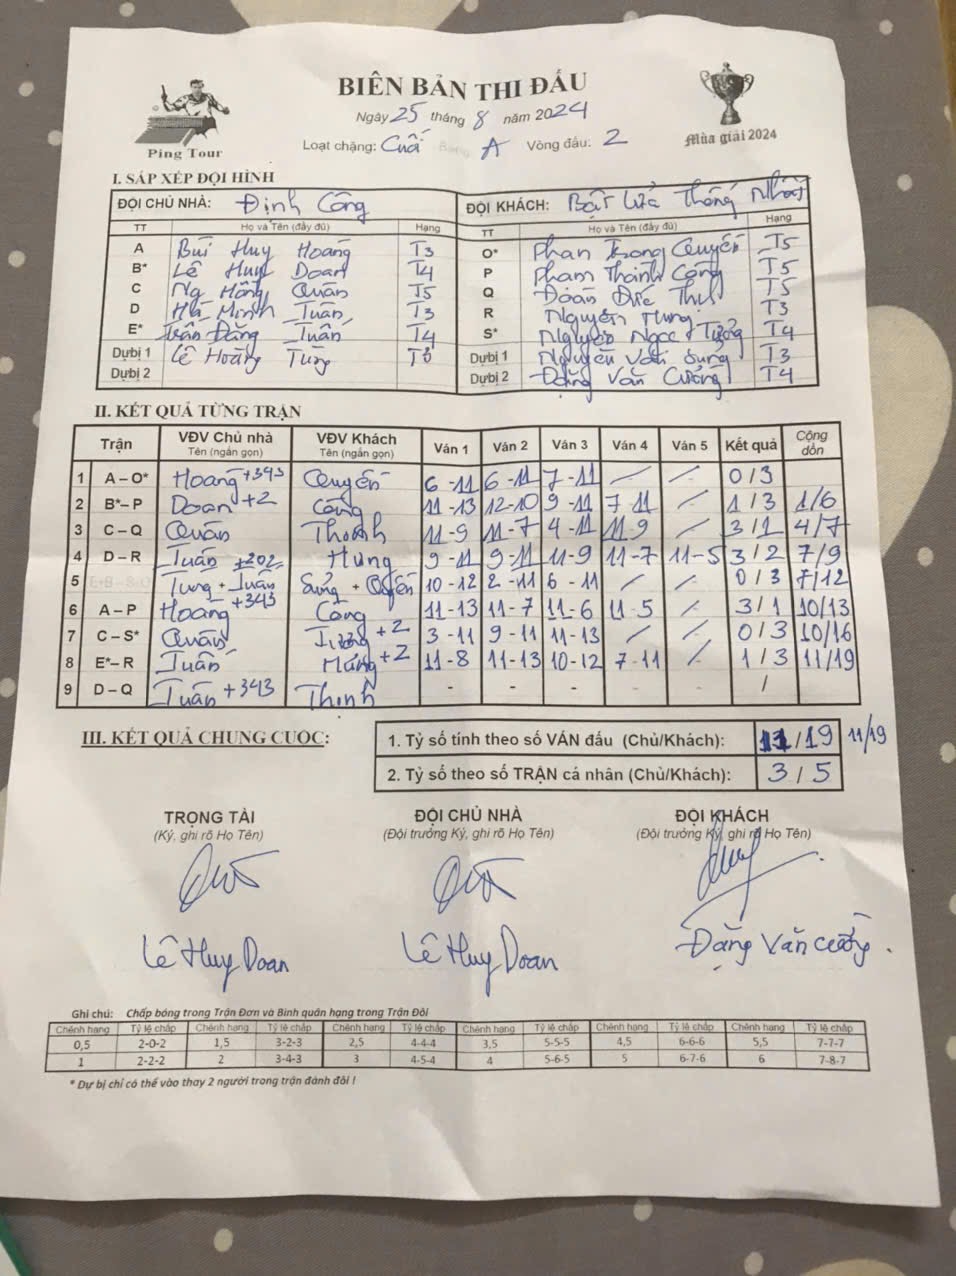 BIÊN BẢN THI ĐẤU
Ngày 25 tháng 8 năm 2024
Loạt chặng: Cuối Bảng A Vòng đấu: 2
Ping Tour
Mùa giải 2024
I. SẮP XẾP ĐỘI HÌNH
ĐỘI CHỦ NHÀ: Định Công ĐỘI KHÁCH: Bật Lửa Thống Nhất
TT Họ và Tên (đầy đủ) Hạng TT Họ và Tên (đầy đủ) Hạng
A Bùi Huy Hoàng T3 O* Phan Trọng Quyến T5
B* Lê Huy Doan T4 P Phạm Thành Công T5
C Ng Hồng Quân T5 Q Đoàn Đức T5
D Hà Minh Tuấn T3 R Nguyễn Hưng T3
E* Trần Đăng Tuấn T4 S* Nguyễn Ngọc Tưởng T4
Dự bị 1 Lê Hoàng Tùng Dự bị 1 Nguyễn Văn T3
Dự bị 2 Dự bị 2 Đặng Văn Cường T4
II. KẾT QUẢ TỪNG TRẬN
Trận VĐV Chủ nhà Tên (ngắn gọn) VĐV Khách Tên (ngắn gọn) Ván 1 Ván 2 Ván 3 Ván 4 Ván 5 Kết quả Cộng dồn
1 A – O* Hoàng +343 Quyến 6 - 11 6 - 11 7 - 11 - - 0 / 3
2 B* – P Doan +2 Công 11 - 13 12 - 10 9 - 11 7 - 11 - 1 / 3 1/6
3 C – Q Quân Thịnh 11 - 9 11 - 7 4 - 11 11 - 9 - 3 / 1 4/7
4 D – R Tuấn +202 Hưng 9 - 11 9 - 11 11 - 9 11 - 7 11 - 5 3 / 2 7/9
5 Tùng + Tuấn + Quyến 10 - 12 2 - 11 6 - 11 / / 0 / 3 7/12
6 A – P Hoàng +343 Công 11 - 13 11 - 7 11 - 6 11 - 5 / 3 / 1 10/13
7 C – S* Quân Tưởng +2 3 - 11 9 - 11 11 - 13 - - 0 / 3 10/16
8 E* – R Tuấn +2 11 - 8 11 - 13 10 - 12 7 - 11 - 1 / 3 11/19
9 D – Q Tuấn +343 Thịnh - - - - - /
III. KẾT QUẢ CHUNG CUỘC:
1. Tỷ số tính theo số VÁN đấu (Chủ/Khách): 11 / 19 11/19
2. Tỷ số theo số TRẬN cá nhân (Chủ/Khách): 3 / 5
TRỌNG TÀI ĐỘI CHỦ NHÀ ĐỘI KHÁCH
(Ký, ghi rõ Họ Tên) (Đội trưởng Ký, ghi rõ Họ Tên) (Đội trưởng Ký, ghi rõ Họ Tên)
Lê Huy Doan Lê Huy Doan Đặng Văn Cường.
Ghi chú: Chấp bóng trong Trận Đơn và Bình quân hạng trong Trận Đôi
Chênh hạng Tỷ lệ chấp Chênh hạng Tỷ lệ chấp Chênh hạng Tỷ lệ chấp Chênh hạng Tỷ lệ chấp Chênh hạng Tỷ lệ chấp Chênh hạng Tỷ lệ chấp
0,5 2-0-2 1,5 3-2-3 2,5 4-4-4 3,5 5-5-5 4,5 6-6-6 5,5 7-7-7
1 2-2-2 2 3-4-3 3 4-5-4 4 5-6-5 5 6-7-6 6 7-8-7
* Dự bị chỉ có thể vào thay 2 người trong trận đánh đôi !